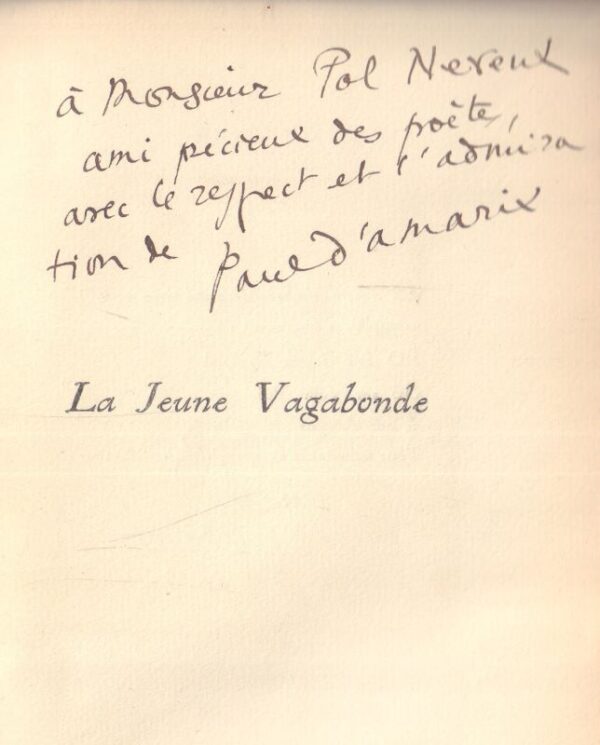 à Monsieur Pol Neveux
ami précieux des poètes,
avec le respect et l'admira
tion de Paul d'amarix
La Jeune Vagabonde